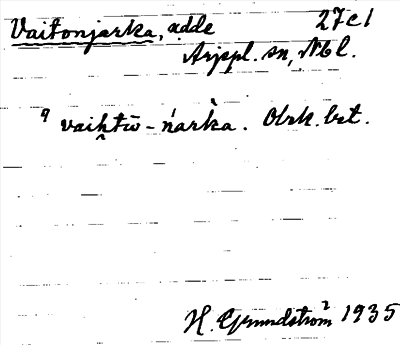 Vaitonjarka, adde 27c1
Arjepl. sn, Nbl.
a vaiḫtω̄-ńarka. Obsk. bst.
H. Grundström 1935